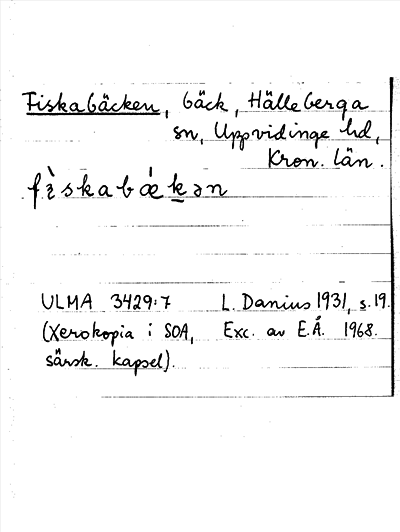 Fiskabäcken, bäck, Hälleberga
sn, Uppvidinge hd,
Kron. län.
fìskabǽkən
ULMA 3429:7 L. Danius 1931, s. 19.
(Xerokopia i SOA, Exc. av E.Å. 1968.
särsk. kapsel).